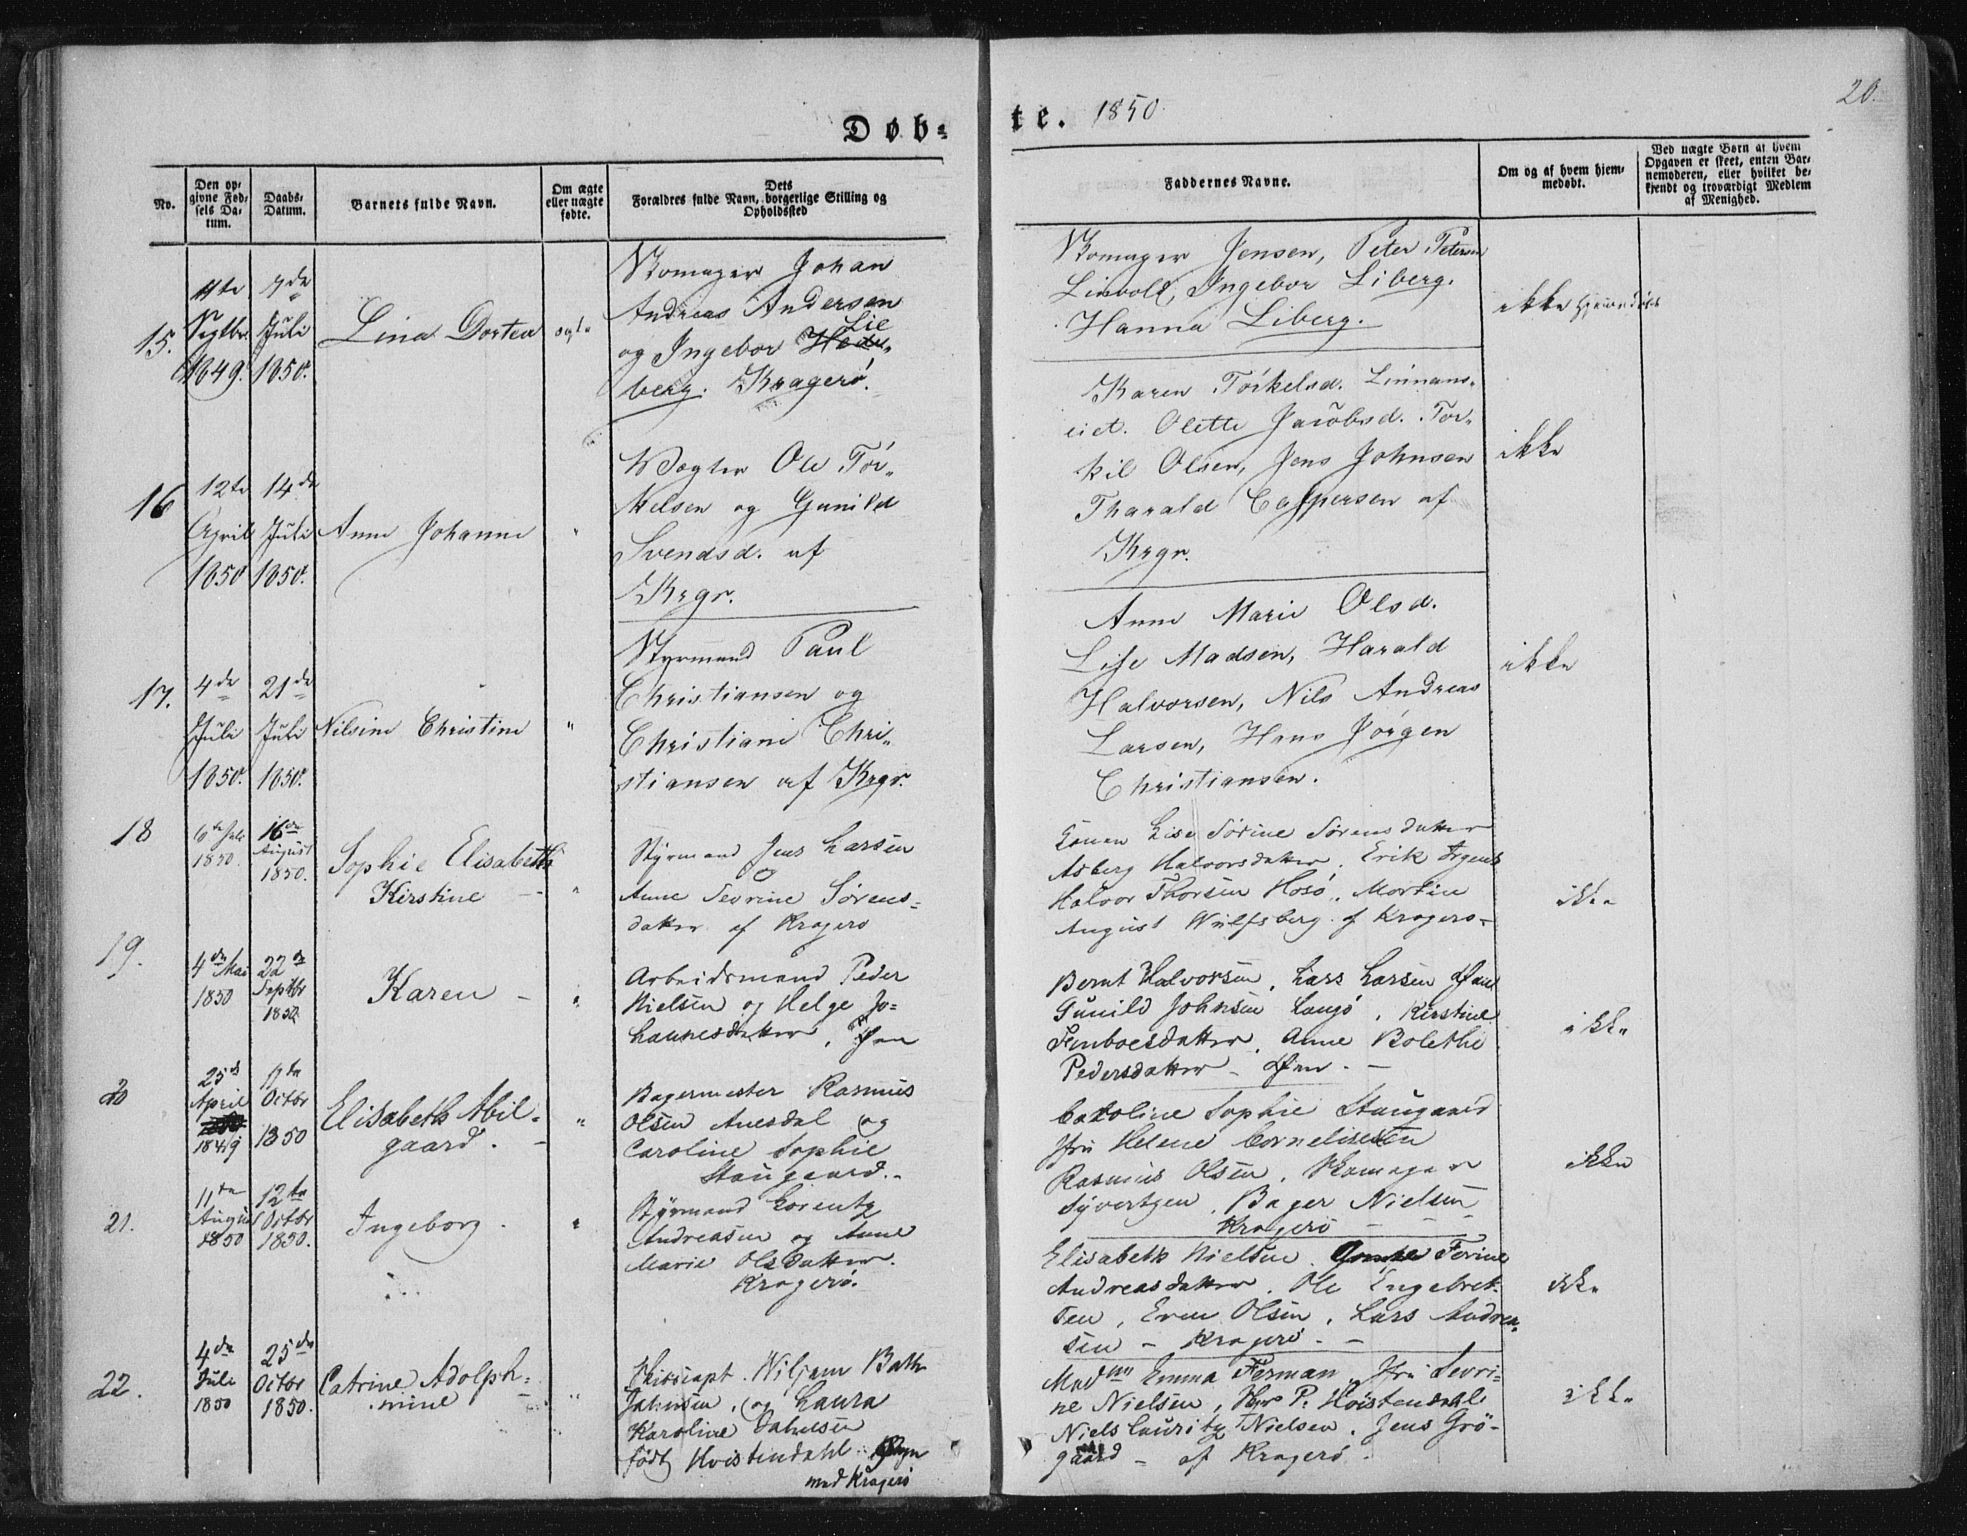 20.
Døb-
te. 1850
No.
Den op-
givne Fød-
sels Da-
tum.
Daabs-
Datum.
Barnets fulde Navn.
Om ægte
eller uægte
fødte.
Dets
Forældres fulde Navn, borgerlige Stilling og
Opholdssted
Faddernes Navne.
Om og af hvem hjem-
medøbt.
Ved uægte Børn at hvem
Opgaven er skeet, enten Bar-
nemoderen, eller hvilket be-
kjendt og troværdigt Medlem
af Menighed.
15.
Septbr
1849.
7de
Juli
1850.
Lina Dortea
ægte
Skomager Johan
Andreas Andersen
Lie
og Ingebor
berg. Kragerø.
Skomager Jensen, Peter Petersen
Ingebor Liberg.
Hanna Liberg.
ikke
16
12te
April
1850
14de
Juli
1850.
Anne Johanne
"
Vægter Ole Tor-
kelsen og Gunild
Svendsd. af
Krgr.
Karen Torkelsd.
Olette Jacobsd. Tor-
kil Olsen, Jens Johnsen
Tharald Caspersen af
Krgr.
ikke
17.
4de
Juli
1850.
21de
Juli
1850.
Nilsine Christine
"
Styrmand Paul
Christiansen og
Christiane Chri-
stiansen af Krgr.
Anne Marie Olsd.
Lise Madsen, Harald
Halvorsen, Nils Andreas
Larsen, Hans Jørgen
Christiansen.
ikke
18
Juli
1850.
16de
August
1850.
Sophie Elisabeth
Kirstine -
"
Styrmand Jens Larsen
og
Anne Severine Sørens-
datter af Kragerø
Konen Lise Sørine Sørensdatter
Asberg Halvorsdatter. Erik
Halvor Thorsen Morten
August Wulfsberg af Kragerø -
ikke
19.
4de Mai
1850
22de
Septbr
1850
Karen -
"
Arbeidsmand Peder
Nielsen og Helge Jo-
hannesdatter, Øen
Bernt Halvorsen, Lars Larsen Øen
Gunild Johnsen Langø, Kirstine
Anne Bolethe
Pedersdatter - Øen. -
ikke
20
25de
April
1849
Octbr
1850
Elisabeth Abil-
gaard. -
"
Bagermester Rasmus
Olsen og
Caroline Sophie
Staugaard. -
Caroline Sophie Staugaard
Jfr Helene Cornelisen
Rasmus Olsen, Skomager
Syvertsen, Bager Nielsen
Kragerø -
ikke
21.
11te
August
1850
12te
Octbr
1850.
Ingeborg.
"
Styrmand Lorentz
Andreasen og Anne
Marie Olsdatter.
Kragerø.
Elisabeth Nielsen. Terine
Andreasdatter. Ole Engebret-
sen, Even Olsen, Lars Andrea-
sen - Kragerø -
ikke
22.
4de
Juli
1850
25de
Octbr
1850.
Catrine Adolph-
mine -
"
Skibscapt. Wiljam Bath
Jahnsen, og Laura
Karoline Jahnsen
født Hvistendahl
ved Kragerø
Madme Emma Ferman, Jfr Sevri-
ne Nielsen, Hr P. Høistendahl
Niels Lauritz Nielsen, Jens Grø-
gaard - af Kragerø.
ikke